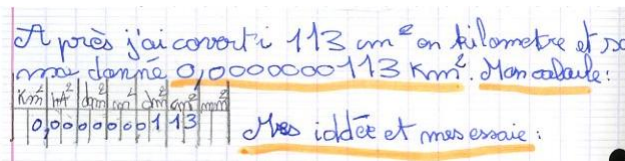 Après j'ai converti 113 cm² en kilometre et
ma donné 0,0000000113 Km². Mon calcule :
Km² hA² dam² m² dm² cm² mm²
0,00 00 00 00 1 13
Mes iddée et mes essaie :